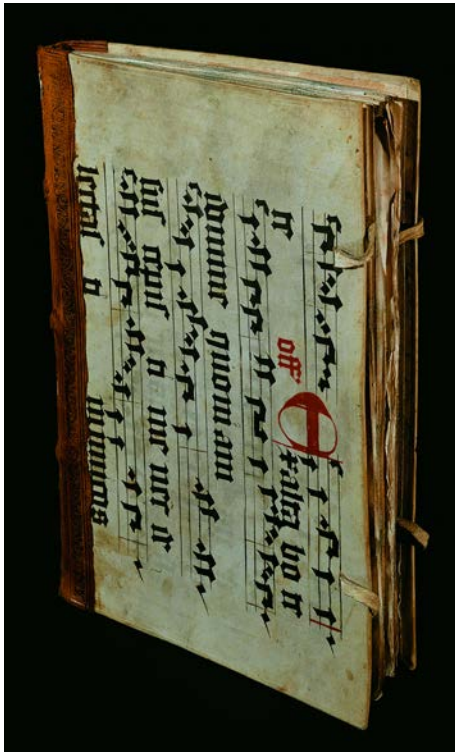 te
off Exalta bo te
domine quoniam
sus cepis ti me nec de
lectas ti inimicos